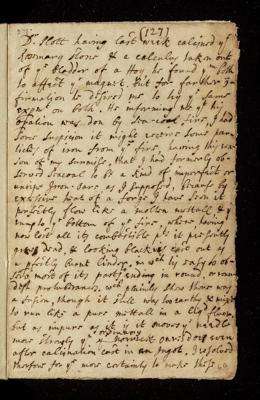 (127)
Dr. Plott having last week calcined ye
Rosemary stone & a calculus taken out
of ye bladder of a Hog he found both
to affect ye magnet. But for farther
firmation he desired me to try ye same
on both. He informing me yt his
was don by sea-coal fire, I had
some suspicion it might receive some par
ticles of iron from ye fire, having this rea
son of my surmise, that I had formerly ob
served seacoal to be a kind of imperfect or
unripe Iron-oare, as I supposed, because by
excessive heat of a forge I have seen it
perfectly flow like a molten mettall, &
ye bottom of ye fire where having
now lost all its combustible pts it presently
grows dead, & looking blackish cast out as
a perfectly burnt Cinder, in wch tis easy to ob
serve most of its parts ending in round, or roun
dish protuberances, wch plainly shew there was
a fusion, though it still why & might
to run like a pure mettall in a
but as impure as it is it moves ye needle
more strongly yn ordinary oares does even
after calcination cast in an Ingot, I resolved
therfore for ye more certainty to make this